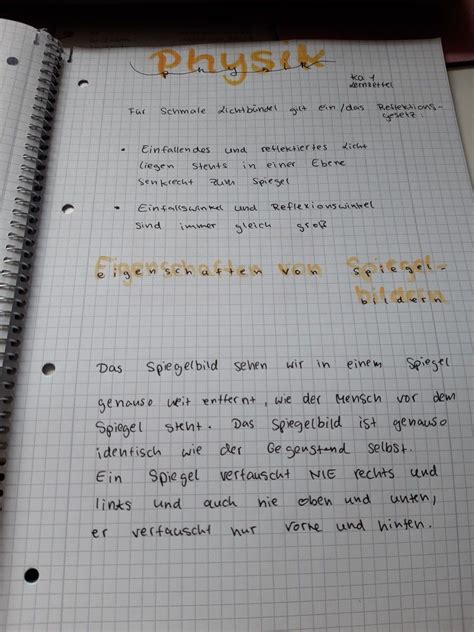 Physik
physik
KA 1
Lernzettel
Für schmale Lichtbündel gilt ein/das Reflektions-
gesetz:
• Einfallendes und reflektiertes Licht
liegen stehts in einer Ebene
senkrecht zum Spiegel
• Einfallswinkel und Reflexionswinkel
sind immer gleich groß
Eigenschaften von Spiegel-
bildern
Das Spiegelbild sehen wir in einem Spiegel
genauso weit entfernt, wie der Mensch vor dem
Spiegel steht. Das Spiegelbild ist genauso
identisch wie der Gegenstand selbst.
Ein Spiegel vertauscht NIE rechts und
links und auch nie oben und unten,
er vertauscht nur vorne und hinten.